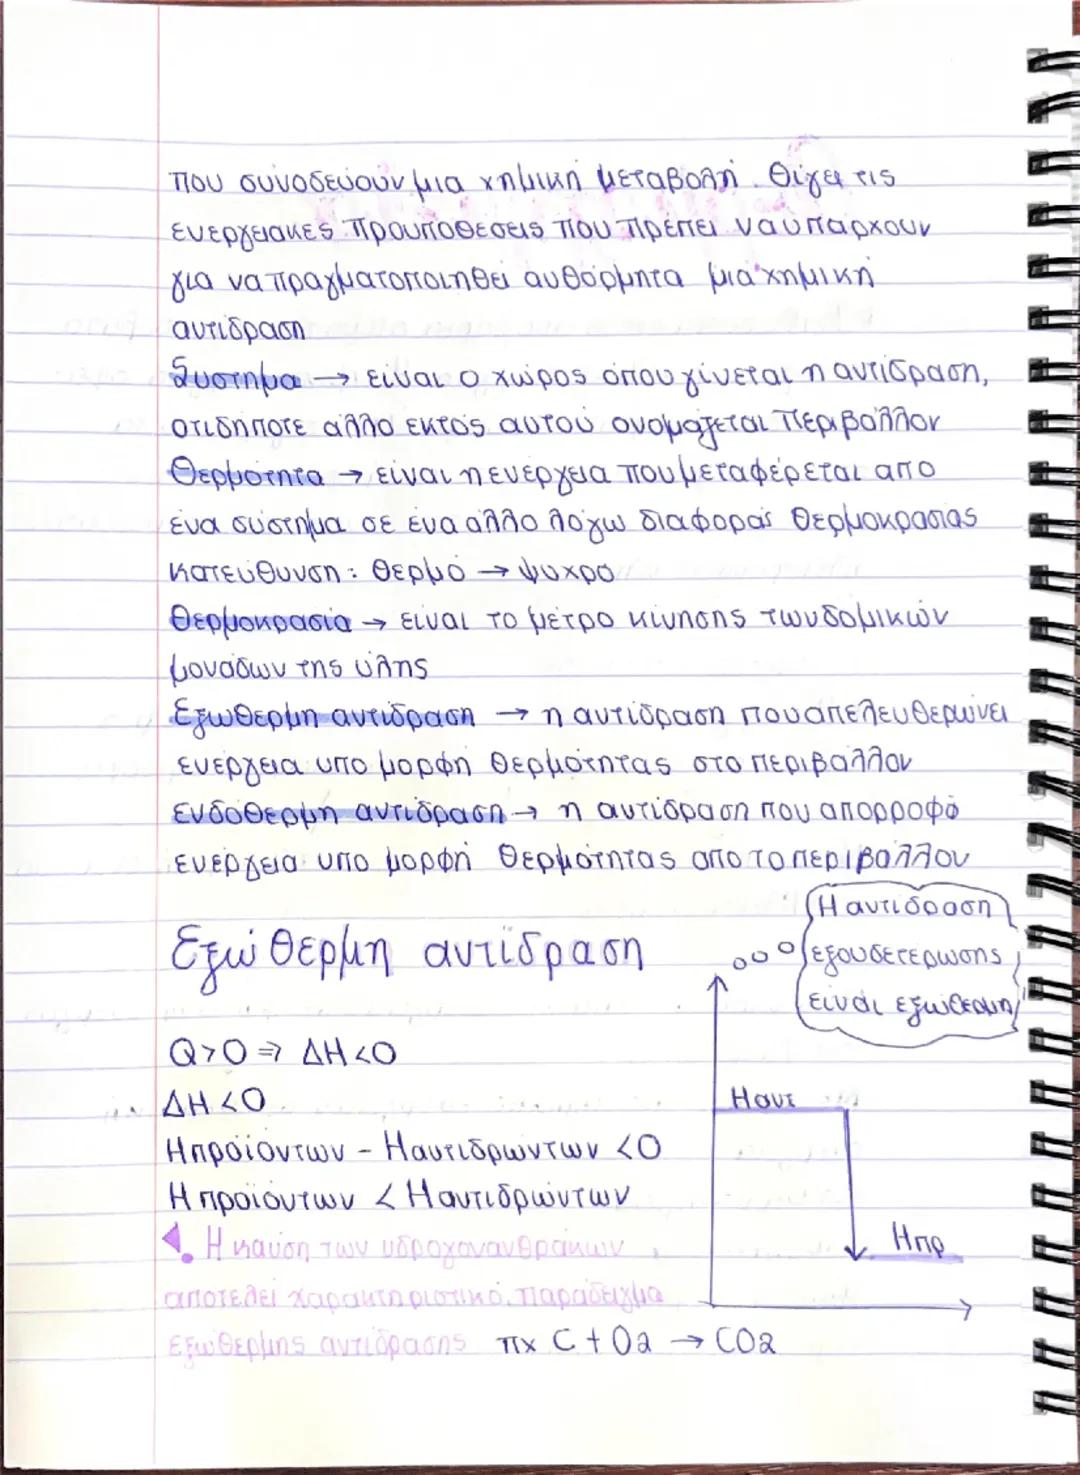 που συνοδεύουν μια χημική μεταβολή. Θίγει τις
ενεργειακές προϋποθέσεις που πρέπει να υπάρχουν
για να πραγματοποιηθεί αυθόρμητα μια χημική
αντίδραση
Σύστημα → είναι ο χώρος όπου γίνεται η αντίδραση,
οτιδήποτε άλλο εκτός αυτού ονομάζεται περιβάλλον
Θερμότητα → είναι η ενέργεια που μεταφέρεται από
ένα σύστημα σε ένα άλλο λόγω διαφοράς θερμοκρασίας
κατεύθυνση: θερμό → ψυχρό
Θερμοκρασία → είναι το μέτρο κίνησης των δομικών
μονάδων της ύλης
Εξώθερμη αντίδραση → η αντίδραση που απελευθερώνει
ενέργεια υπό μορφή θερμότητας στο περιβάλλον
ενδόθερμη αντίδραση → η αντίδραση που απορροφά
ενέργεια υπό μορφή θερμότητας από το περιβάλλον
Η αντίδραση
εξουδετέρωσης
είναι εξώθερμη
Εξώθερμη αντίδραση
Q>0 ⇒ ΔΗ<0
ΔΗ<0
Ηπροϊόντων - Ηαντιδρώντων <0
Ηπροϊόντων < Ηαντιδρώντων
Ηαντ
Ηπρ
Η καύση των υδρογονανθράκων
αποτελεί χαρακτηριστικό παράδειγμα
εξώθερμης αντίδρασης πχ C + O2 → CO2